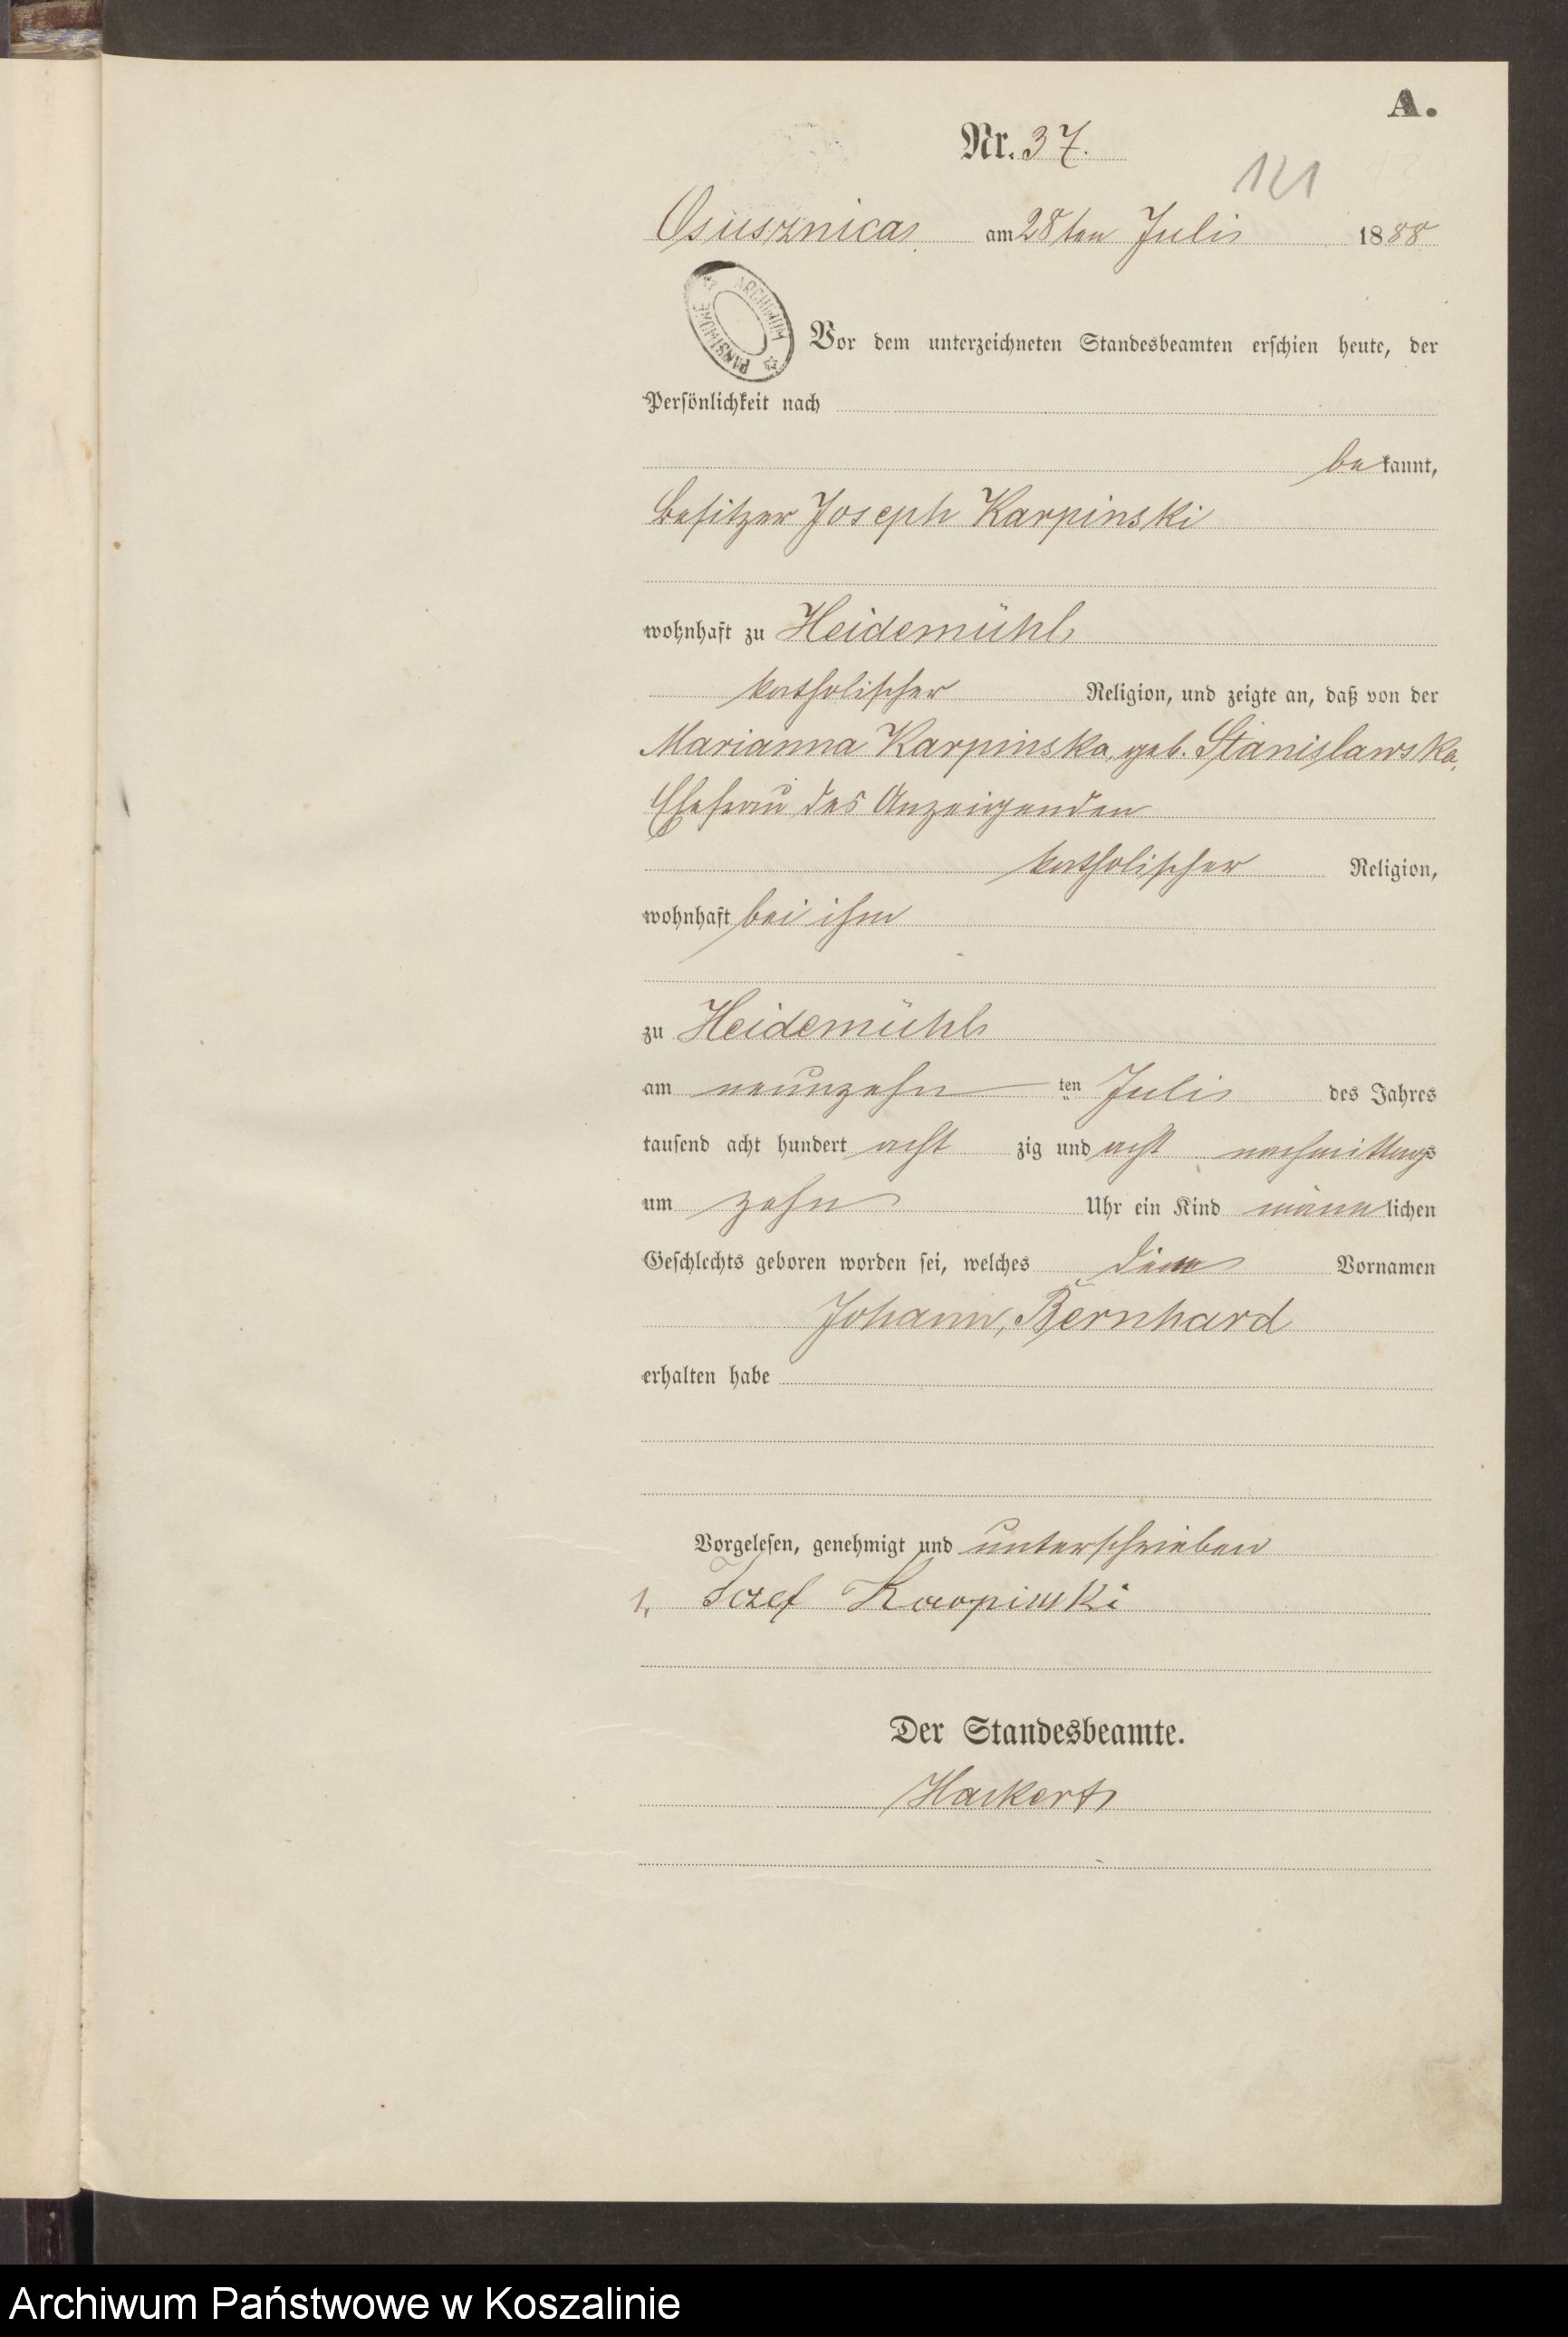 A.
Nr. 37.
121
Osusznica am 28ten Juli 1888
ARCHIWUM PAŃSTWOWE
Vor dem unterzeichneten Standesbeamten erschien heute, der
Persönlichkeit nach
bekannt,
Besitzer Joseph Karpinski
wohnhaft zu Heidemühl
katholischer Religion, und zeigte an, daß von der
Marianna Karpinska, geb. Stanislawska,
Ehefrau des Anzeigenden
katholischer Religion,
wohnhaft bei ihm
zu Heidemühl
am neunzehn ten Juli des Jahres
tausend acht hundert acht zig und acht nachmittags
um zehn Uhr ein Kind männlichen
Geschlechts geboren worden sei, welches die Vornamen
Johann, Bernhard
erhalten habe
Vorgelesen, genehmigt und unterschrieben
1, Iozef Karpinski
Der Standesbeamte.
Hackert
Archiwum Państwowe w Koszalinie